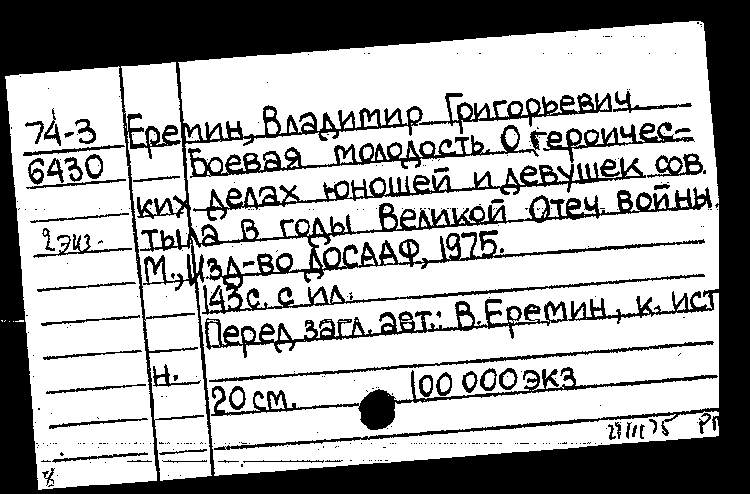 74-3 Еремин, Владимир Григорьевич.
6430 Боевая молодость. О героичес-
ких делах юношей и девушек сов.
2 экз. тыла в годы Великой Отеч. войны.
М., Изд-во ДОСААФ, 1975.
143с. с ил.
Перед загл. авт.: В.Еремин, к. ист
н.
20 см. 100 000 экз
РП